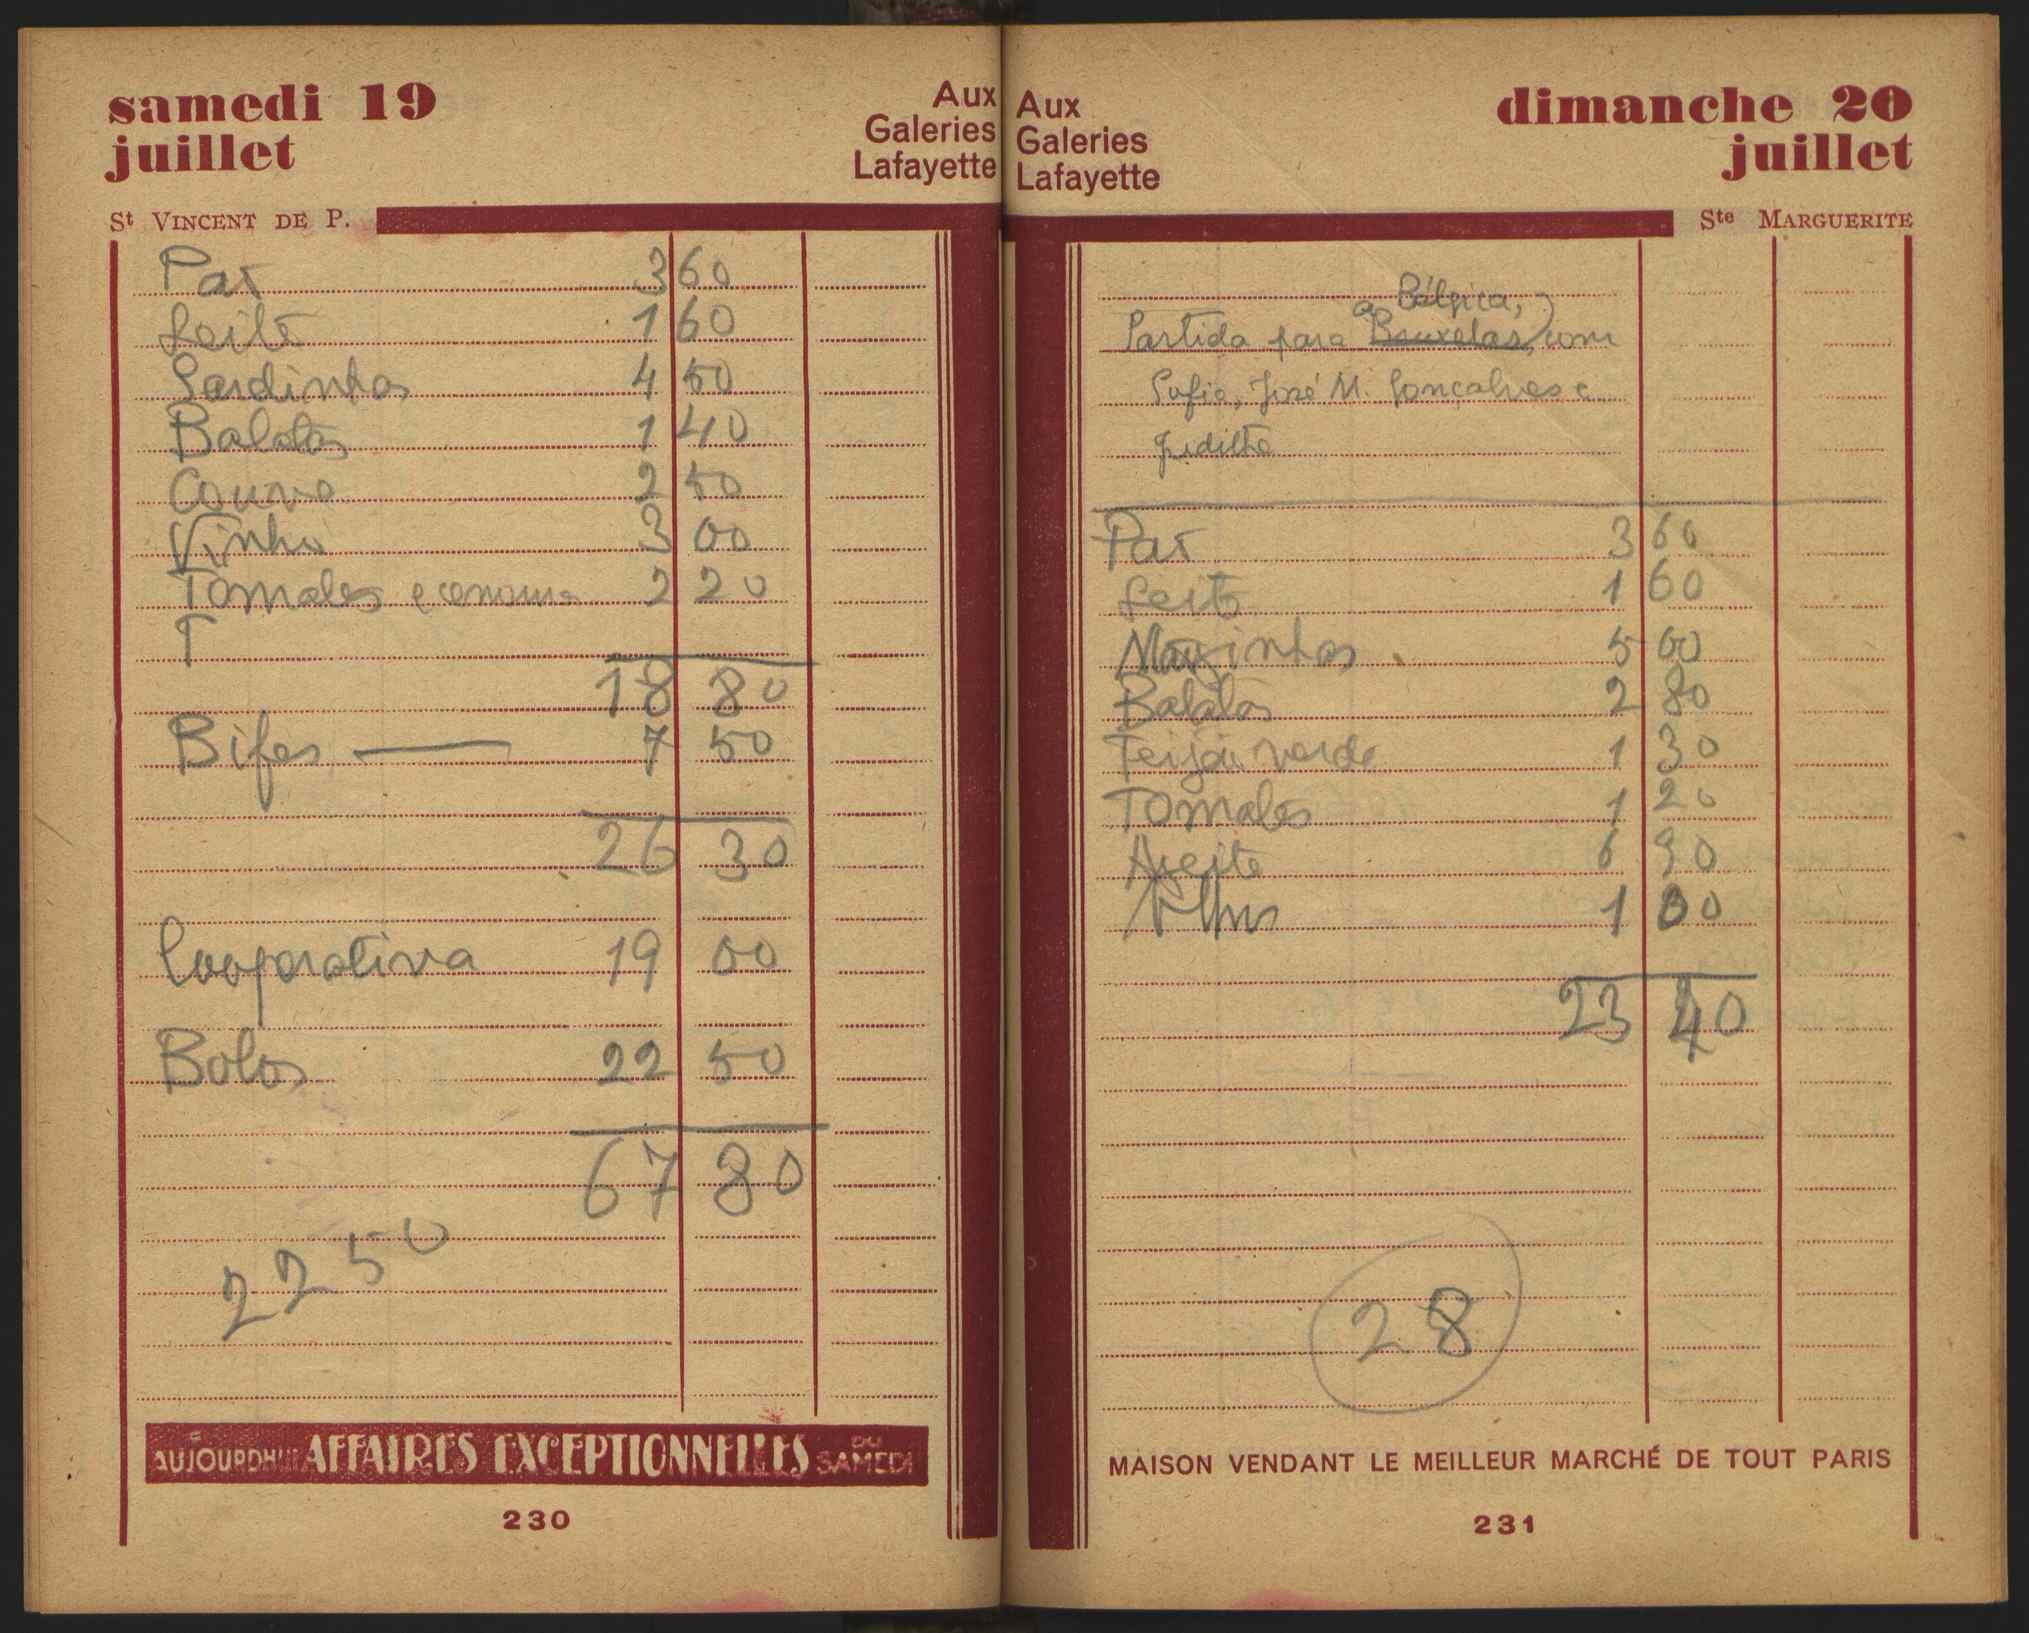 samedi 19
juillet
Aux
Galeries
Lafayette
St VINCENT DE P.
Pão 3 60
Leite 1 60
Sardinhas 4 50
Batatas 1 40
Couve 2 50
Vinho 3 00
Tomates e cenouras 2 20
T
18 80
Bifes — 7 50
26 30
Cooperativa 19 00
Bolos 22 50
67 80
22 50
AUJOURD'HUI AFFAIRES EXCEPTIONNELLES DU SAMEDI
230
Aux
Galeries
Lafayette
dimanche 20
juillet
Ste MARGUERITE
a Bélgica,
Partida para Bruxelas, com
Sofia, José M. Gonçalves e
Pão 3 60
Leite 1 60
5 00
Batatas 2 80
Feijão verde 1 30
Tomates 1 20
Azeite 6 90
Alhos 1 00
23 40
28
MAISON VENDANT LE MEILLEUR MARCHÉ DE TOUT PARIS
231